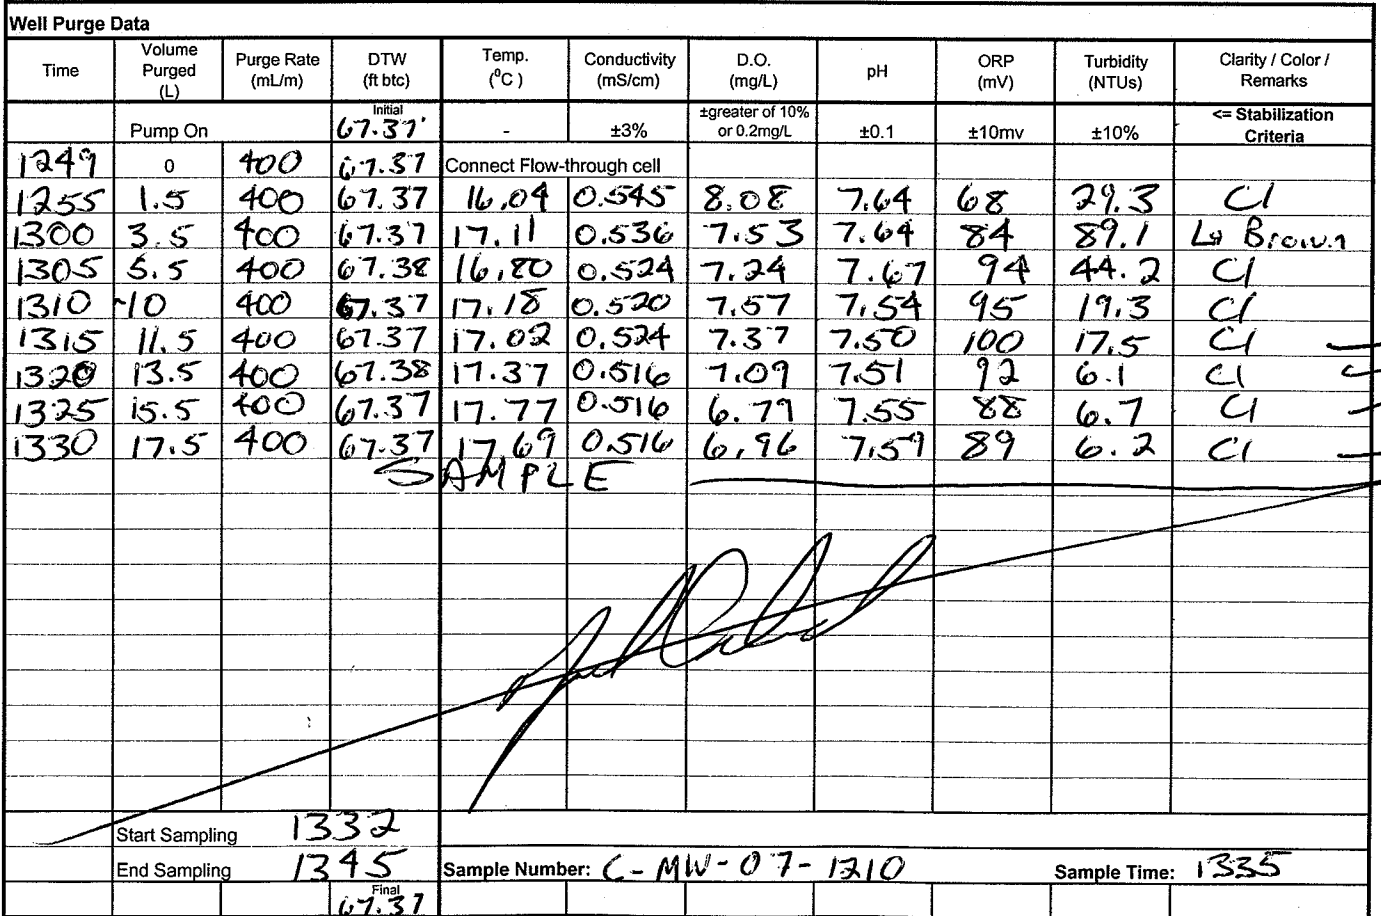 Well Purge Data
Time Volume Purged (L) Purge Rate (mL/m) DTW (ft btc) Temp. (⁰C ) Conductivity (mS/cm) D.O. (mg/L) pH ORP (mV) Turbidity (NTUs) Clarity / Color / Remarks
Pump On Initial 67.37' - ±3% ±greater of 10% or 0.2mg/L ±0.1 ±10mv ±10% <= Stabilization Criteria
1249 0 400 67.37 Connect Flow-through cell
1255 1.5 400 67.37 16.04 0.545 8.08 7.64 68 29.3 Cl
1300 3.5 400 67.37 17.11 0.536 7.53 7.64 84 89.1 Lt Brown
1305 5.5 400 67.38 16.80 0.524 7.24 7.67 94 44.2 Cl
1310 ~10 400 67.37 17.18 0.520 7.57 7.54 95 19.3 Cl
1315 11.5 400 67.37 17.02 0.524 7.37 7.50 100 17.5 Cl
1320 13.5 400 67.38 17.37 0.516 7.09 7.51 92 6.1 Cl
1325 15.5 400 67.37 17.77 0.516 6.79 7.55 88 6.7 Cl
1330 17.5 400 67.37 17.69 0.516 6.96 7.59 89 6.2 Cl
SAMPLE
Start Sampling 1332
End Sampling 1345 Sample Number: C-MW-07-1210 Sample Time: 1335
Final 67.37